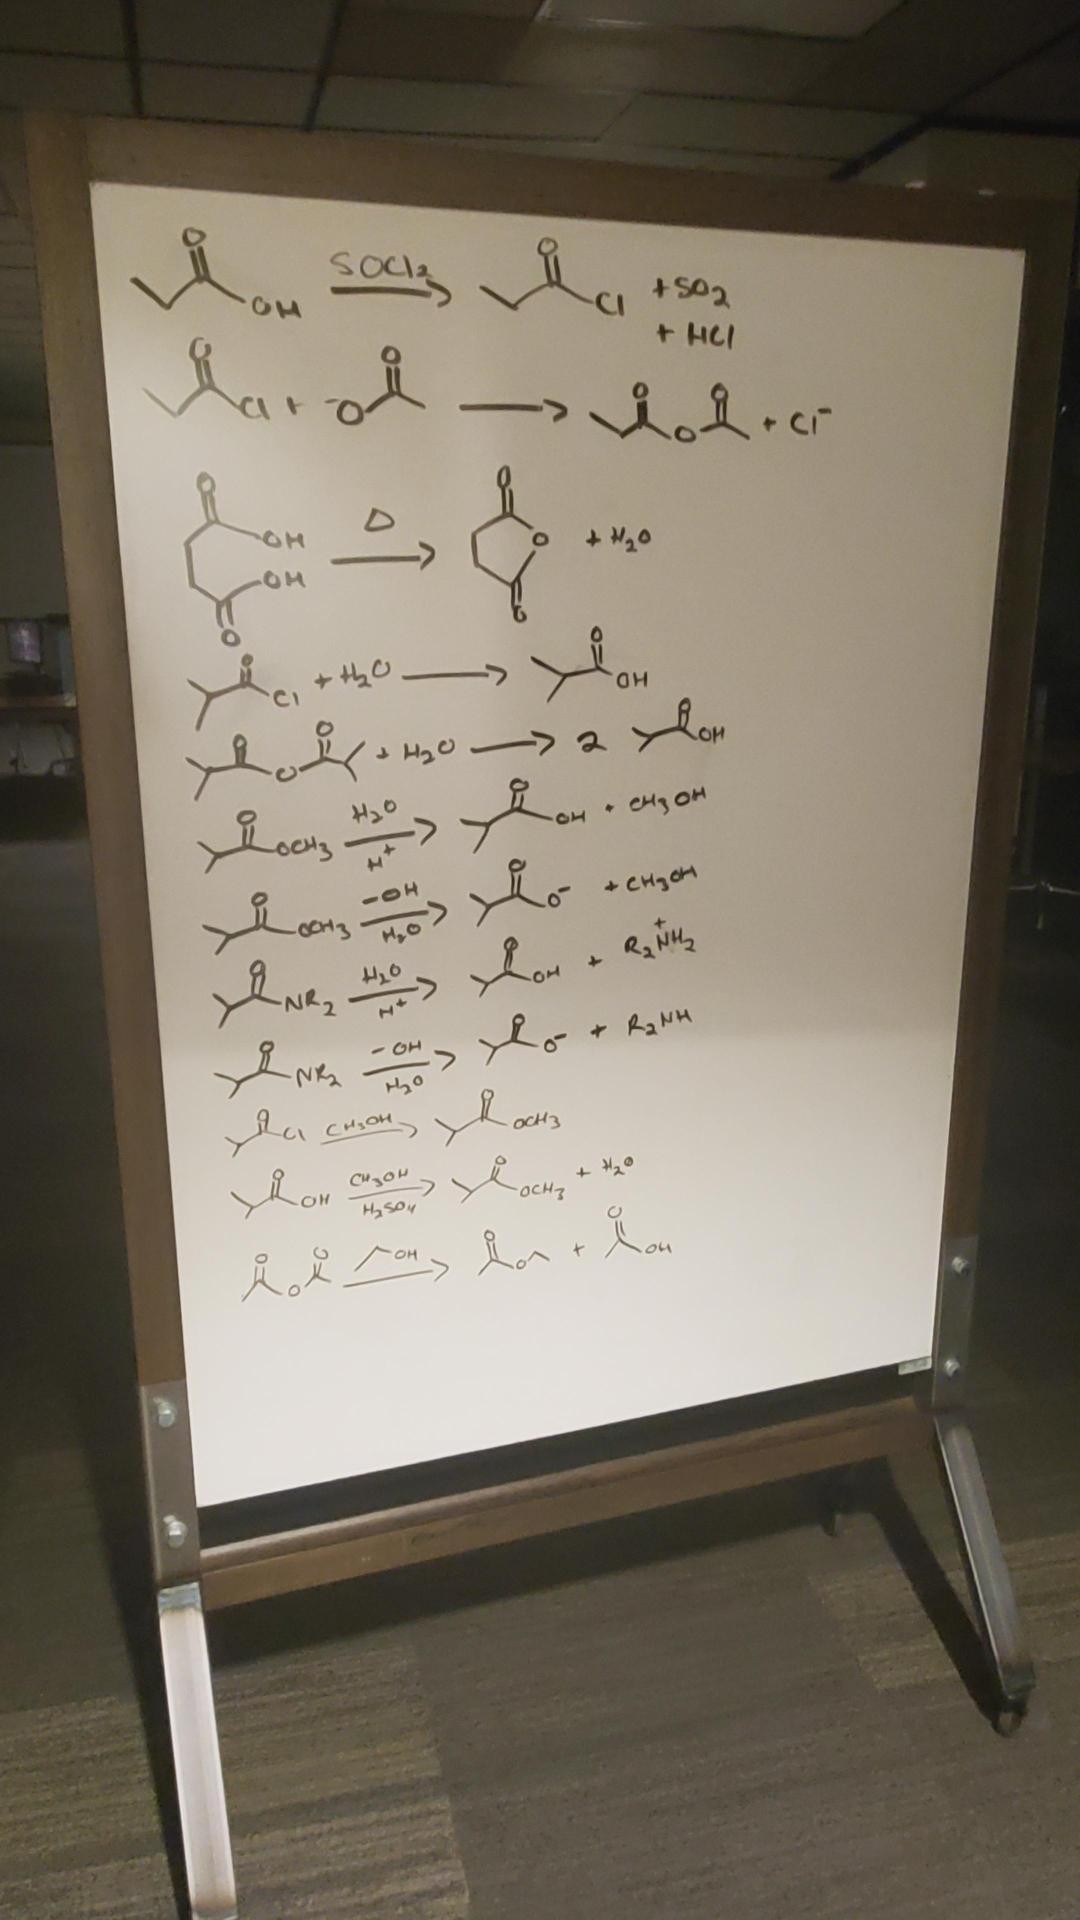 O OH SOCl₂ → O Cl + SO₂
+ HCl
O Cl + ⁻O O → O O O + Cl⁻
O OH OH O Δ → O O O + H₂O
O Cl + H₂O → O OH
O O O + H₂O → 2 O OH
O OCH₃ H₂O H⁺ → O OH + CH₃OH
O OCH₃ ⁻OH H₂O → O O⁻ + CH₃OH
O NR₂ H₂O H⁺ → O OH + R₂N⁺H₂
O NR₂ ⁻OH H₂O → O O⁻ + R₂NH
O Cl CH₃OH → O OCH₃
O OH CH₃OH H₂SO₄ → O OCH₃ + H₂O
O O O OH → O O + O OH